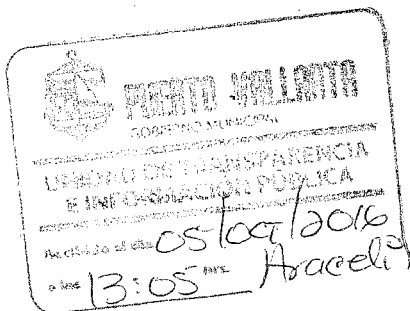 PUERTO VALLARTA
GOBIERNO MUNICIPAL
UNIDAD DE TRANSPARENCIA
E INFORMACIÓN PÚBLICA
Recibido el día 05/oct/2016
a las 13:05 hrs. Araceli